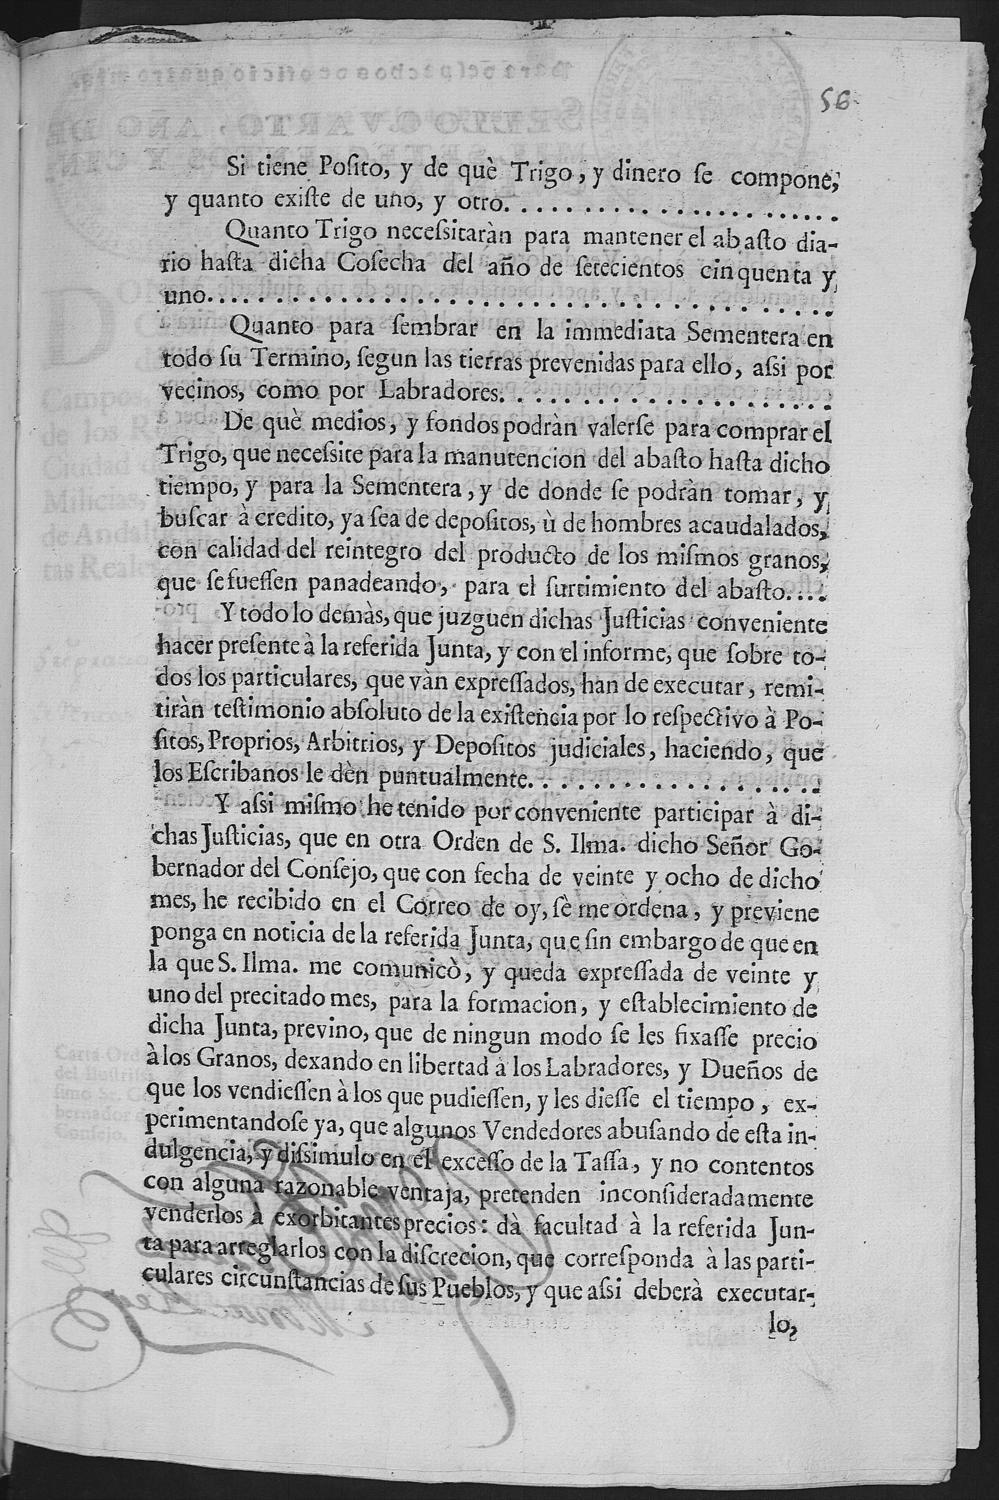 56
Si tiene Posito, y de què Trigo, y dinero se compone,
y quanto existe de uno, y otro. . . . . . . . . . . . . . . . . . . . . .
Quanto Trigo necessitaràn para mantener el abasto dia-
rio hasta dicha Cosecha del año de setecientos cinquenta y
uno. . . . . . . . . . . . . . . . . . . . . . . . . . . . . . . . . . . .
Quanto para sembrar en la immediata Sementera en
todo su Termino, segun las tierras prevenidas para ello, assi por
vecinos, como por Labradores. . . . . . . . . . . . . . . . . . . . .
De què medios, y fondos podràn valerse para comprar el
Trigo, que necessite para la manutencion del abasto hasta dicho
tiempo, y para la Sementera, y de donde se podràn tomar, y
buscar à credito, ya sea de depositos, ù de hombres acaudalados,
con calidad del reintegro del producto de los mismos granos,
que se fuessen panadeando, para el surtimiento del abasto. . . .
Y todo lo demàs, que juzguen dichas Justicias conveniente
hacer presente à la referida Junta, y con el informe, que sobre to-
dos los particulares, que vàn expressados, han de executar, remi-
tiràn testimonio absoluto de la existencia por lo respectivo à Po-
sitos, Proprios, Arbitrios, y Depositos judiciales, haciendo, que
los Escribanos le dèn puntualmente. . . . . . . . . . . . . . . . . .
Y assi mismo he tenido por conveniente participar à di-
chas Justicias, que en otra Orden de S. Ilma. dicho Señor Go-
bernador del Consejo, que con fecha de veinte y ocho de dicho
mes, he recibido en el Correo de oy, sè me ordena, y previene
ponga en noticia de la referida Junta, que sin embargo de que en
la que S. Ilma. me comunicò, y queda expressada de veinte y
uno del precitado mes, para la formacion, y establecimiento de
dicha Junta, previno, que de ningun modo se les fixasse precio
à los Granos, dexando en libertad à los Labradores, y Dueños de
que los vendiessen à los que pudiessen, y les diesse el tiempo, ex-
perimentandose ya, que algunos Vendedores abusando de esta in-
dulgencia, y dissimulo en el excesso de la Tassa, y no contentos
con alguna razonable ventaja, pretenden inconsideradamente
venderlos à exorbitantes precios: dà facultad à la referida Jun-
ta para arreglarlos con la discrecion, que corresponda à las parti-
culares circunstancias de sus Pueblos, y que assi deberà executar-
lo,